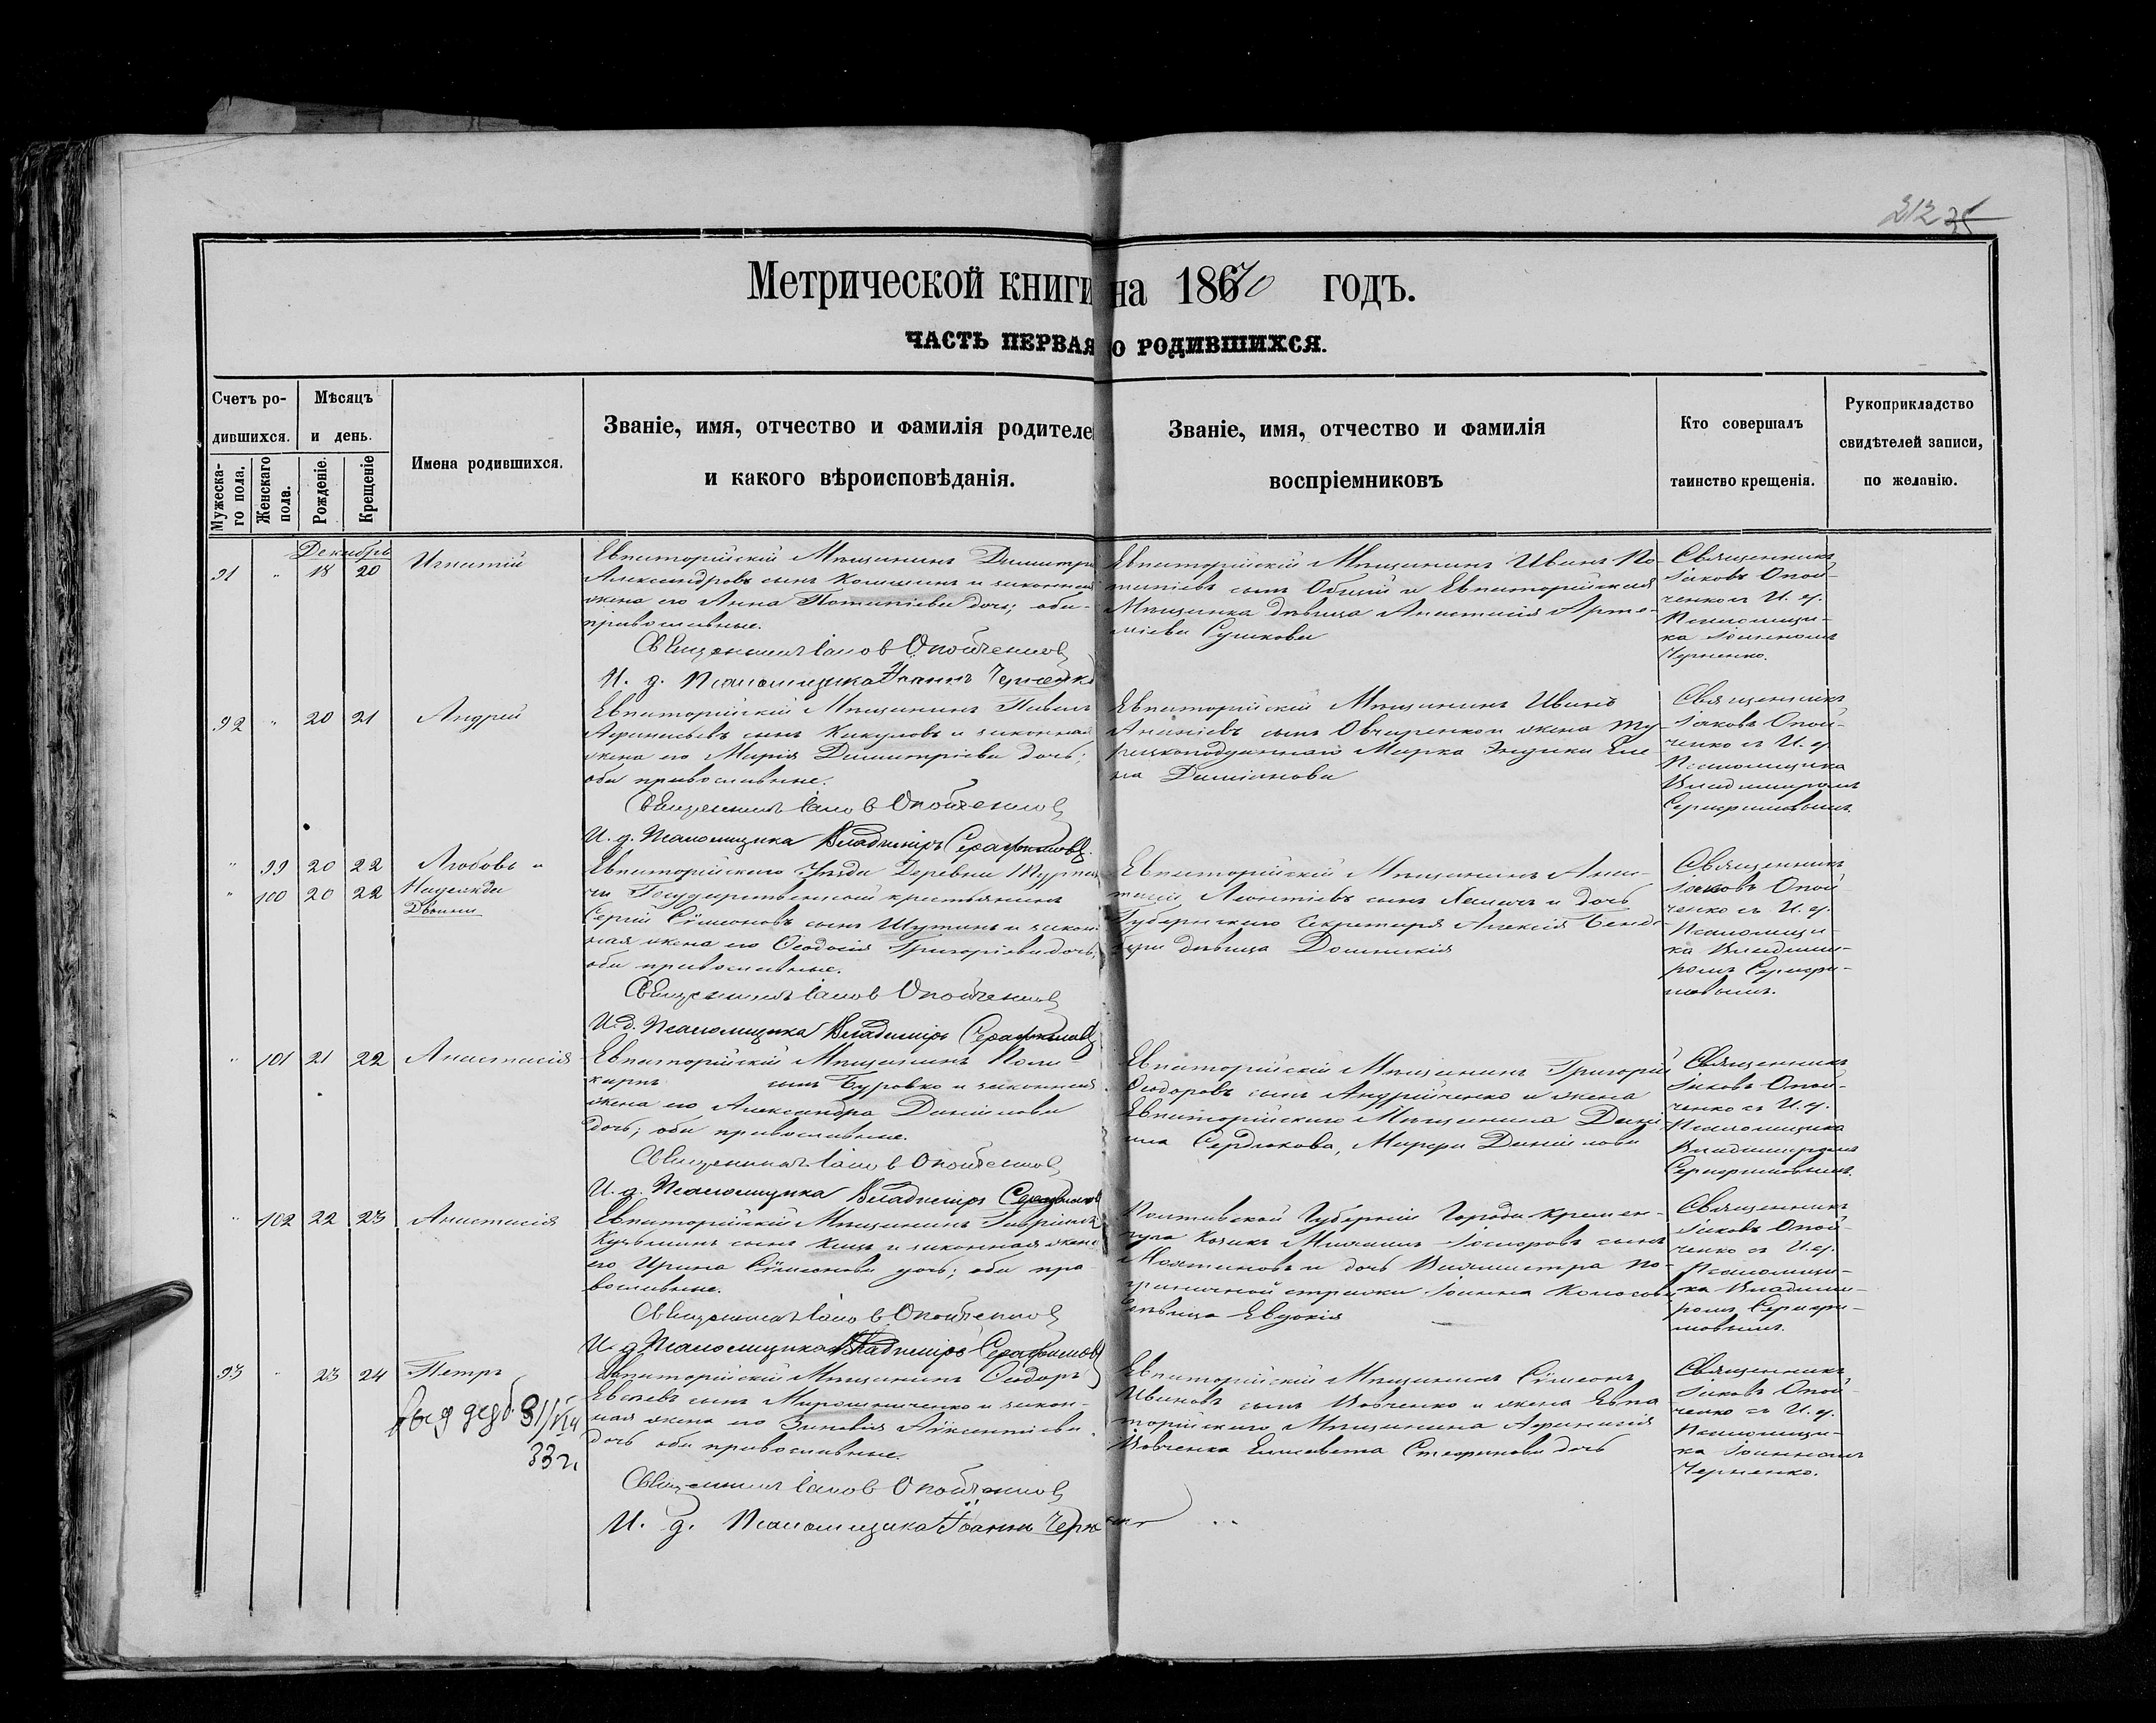 212 35
Метрической книги на 1870 годъ.
ЧАСТЬ ПЕРВАЯ О РОДИВШИХСЯ.
Счетъ ро-
дившихся.
Мужеска-
го пола.
Женскаго
пола.
Мѣсяцъ
и день.
Рожденіе.
Крещеніе
Имена родившихся.
Званіе, имя, отчество и фамилія родителе
и какого вѣроисповѣданія.
Званіе, имя, отчество и фамилія
воспріемниковъ
Кто совершалъ
таинство крещенія.
Рукоприкладство
свидѣтелей записи,
по желанію.
Декабрь
91 " 18 20 Игнатій
Евпаторійскій Мѣщанинъ Димитрі
Александровъ сынъ и законная
жена его Анна Потапіева дочь; оба
православные.
Священникъ Іаковъ Опойченковъ
И. д. Псаломщика Іоаннъ Черненко
Евпаторійскій Мѣщанинъ Иванъ По-
тапіевъ сынъ и Евпаторійская
Мѣщанка дѣвица Анастасія Арте-
міева Сушкова
Священникъ
Іаковъ Опой-
ченко съ И. д.
Псаломщи-
ка Іоанномъ
Черненко.
92 " 20 21 Андрей
Евпаторійскій Мѣщанинъ Павелъ
Афанасьевъ сынъ Какуловъ и законная
жена его Марія Димитріева дочь;
оба православные.
Священникъ Іаковъ Опойченковъ
И. д. Псаломщика Владиміръ Серафимовъ
Евпаторійскій Мѣщанинъ Иванъ
Ананіевъ сынъ Овчаренко и жена Ту-
рецкоподданнаго Марка Еле-
на Даміанова
Священникъ
Іаковъ Опой-
ченко съ И. д.
Псаломщика
Владиміромъ
Серафимовымъ.
" 99 20 22 Любовь и
" 100 20 22 Надежда
Двойни
Евпаторійскаго Уѣзда Деревни
Государственный крестьянинъ
Сергій Сѵмеоновъ сынъ Шутинъ и закон-
ная жена его Ѳеодосія Григоріева дочь;
оба православные.
Священникъ Іаковъ Опойченковъ
И. д. Псаломщика Владиміръ Серафимовъ
Евпаторійскій Мѣщанинъ
Леонтіевъ сынъ и дочь
Губернскаго Секретаря Алексія
дѣвица Домникія
Священникъ
Іаковъ Опой-
ченко съ И. д.
Псаломщи-
ка Владими-
ромъ Серафи-
мовымъ.
" 101 21 22 Анастасія
Евпаторійскій Мѣщанинъ Поли-
карпъ сынъ Буровко и законная
жена его Александра Даніилова
дочь; оба православные.
Священникъ Іаковъ Опойченковъ
И. д. Псаломщика Владиміръ Серафимовъ
Евпаторійскій Мѣщанинъ Григорій
Ѳеодоровъ сынъ Андрійченко и жена
Евпаторійскаго Мѣщанина Дані-
ила Сердюкова, Марфа Даніилова
Священникъ
Іаковъ Опой-
ченко съ И. д.
Псаломщика
Владиміромъ
Серафимовымъ.
" 102 22 23 Анастасія
Евпаторійскій Мѣщанинъ Гавріилъ
Кузьминъ сынъ и законная жена
его Ирина Сѵмеонова дочь; оба пра-
вославные.
Священникъ Іаковъ Опойченковъ
И. д. Псаломщика Владиміръ Серафимовъ
Полтавской Губерніи Города Кремен-
чуга Козакъ Михаилъ сынъ
и дочь Вахмистра по-
граничной стражи Іоанна
дѣвица Евдокія
Священникъ
Іаковъ Опой-
ченко съ И. д.
Псаломщи-
ка Владими-
ромъ Серафи-
мовымъ.
93 " 23 24 Петръ
31/VII
33 г.
Евпаторійскій Мѣщанинъ Ѳеодоръ
сынъ Мирошниченко и закон-
ная жена его Зиновія Аѵксентіева
дочь оба православные.
Священникъ Іаковъ Опойченковъ
И. д. Псаломщика Іоаннъ Черненко
Евпаторійскій Мѣщанинъ Сѵмеонъ
Ивановъ сынъ Вовченко и жена Евпа-
торійскаго Мѣщанина Афанасія
Вовченка Елисавета Стефанова дочь
Священникъ
Іаковъ Опой-
ченко съ И. д.
Псаломщи-
ка Іоанномъ
Черненко.